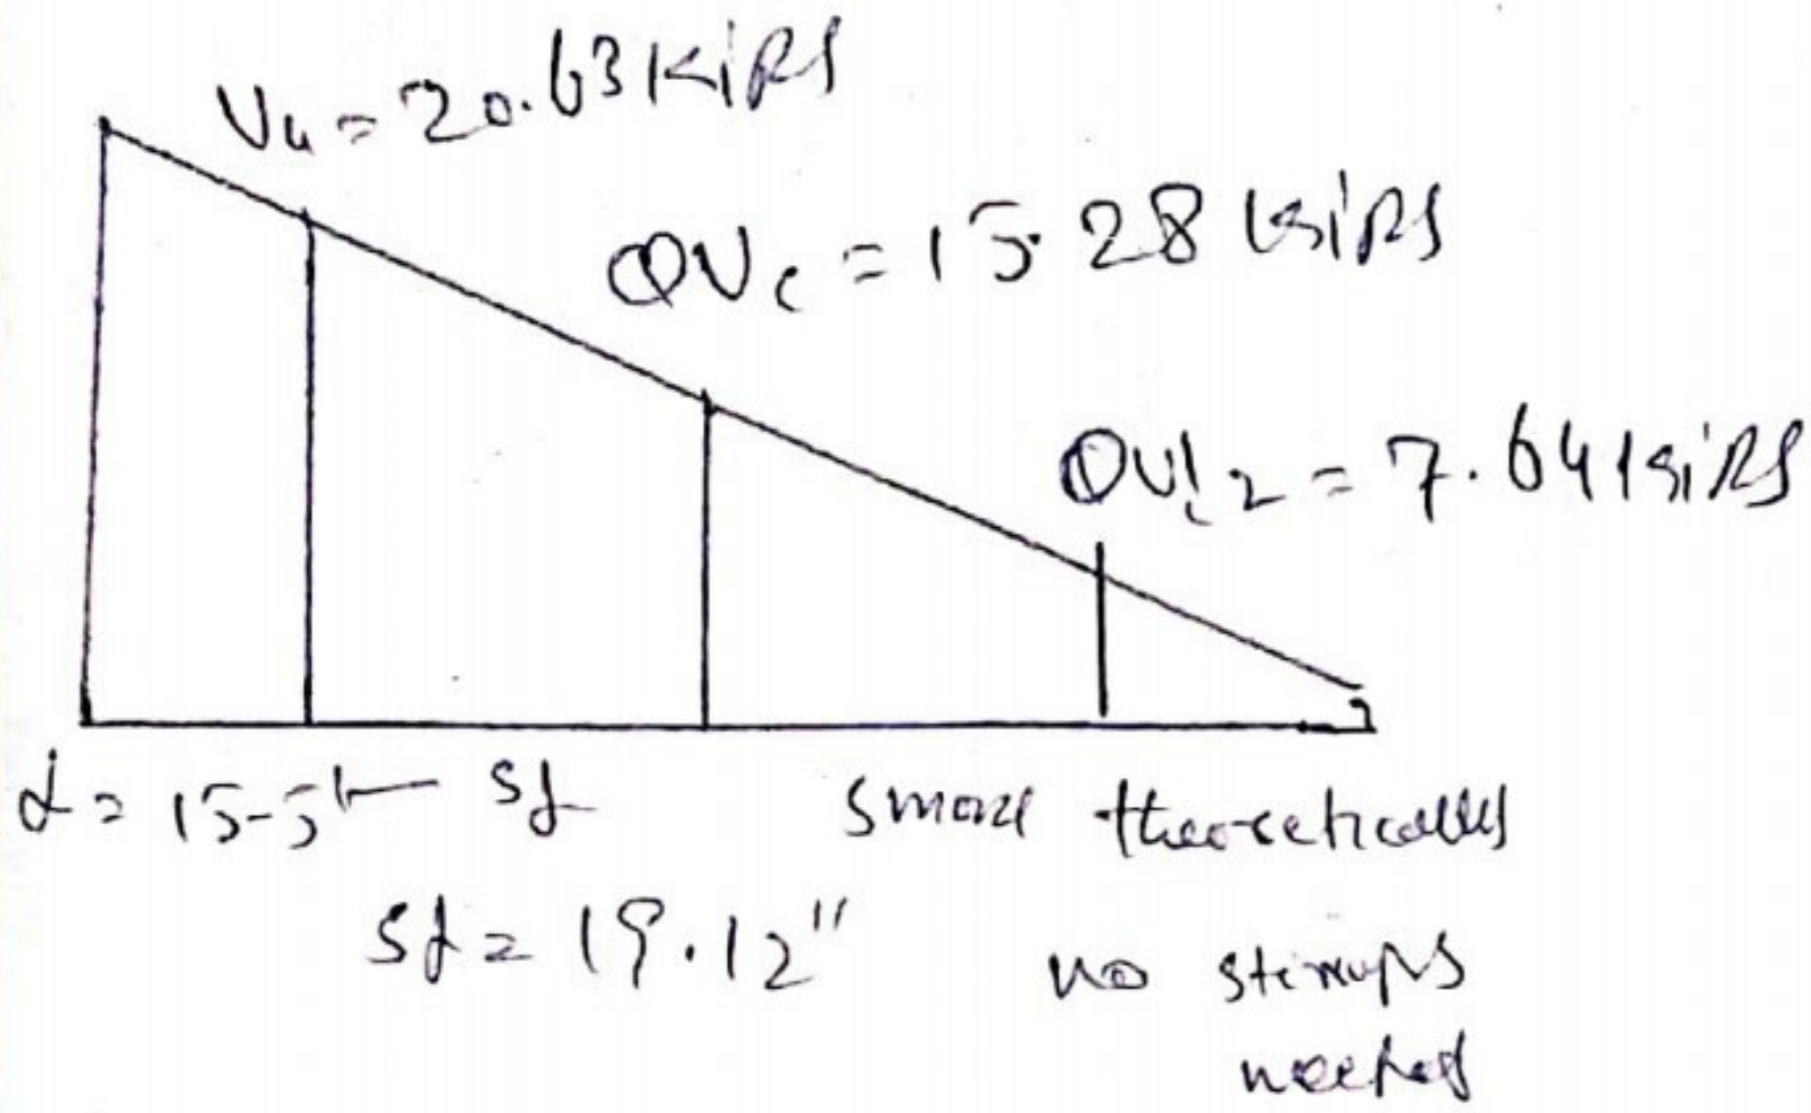 Vu = 20.63 Kips
ΦVc = 15.28 Kips
ΦVc/2 = 7.64 Kips
d = 15.5" Sd Smax theoretically
Sd = 19.12" no stirrups
needed